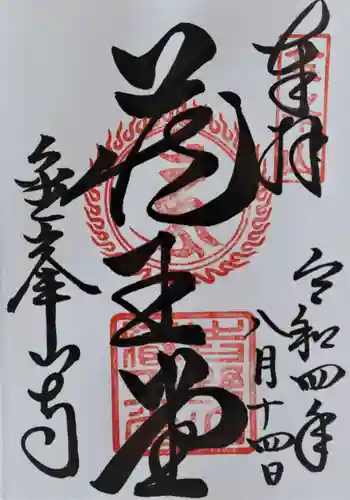 奉拝
令和四年
八月十四日
蔵王堂
金峯山寺